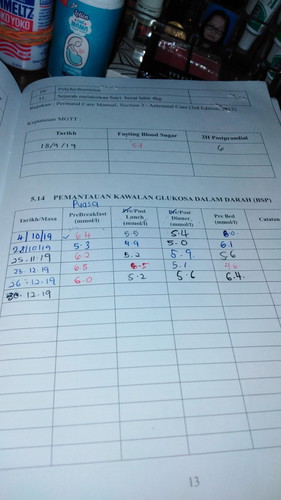 MELTZ
KO YOKO
11. Sejarah melahirkan bayi berat lebih 4kg
Rujukan : Perinatal Care Manual, Section 2 - Antenatal Care (3rd Edition, 2013)
Keputusan MGTT :
Tarikh Fasting Blood Sugar 2H Postprandial
18/9/19 6
5.14 PEMANTAUAN KAWALAN GLUKOSA DALAM DARAH (BSP)
Puasa
Tarikh/Masa PreBreakfast (mmol/l) Pre/Post Lunch (mmol/l) Pre/Post Dinner (mmol/l) Pre Bed (mmol/l) Catatan
4/10/19 ✓ 6.4 5.5 5.4
28/10/19 5.3 4.9 5.0 6.1
25.11.19 6.2 5.2 5.9 5.6
23.12.19 6.5 5.1
26.12.19 6.0 5.2 5.6 6.4
30.12.19
13